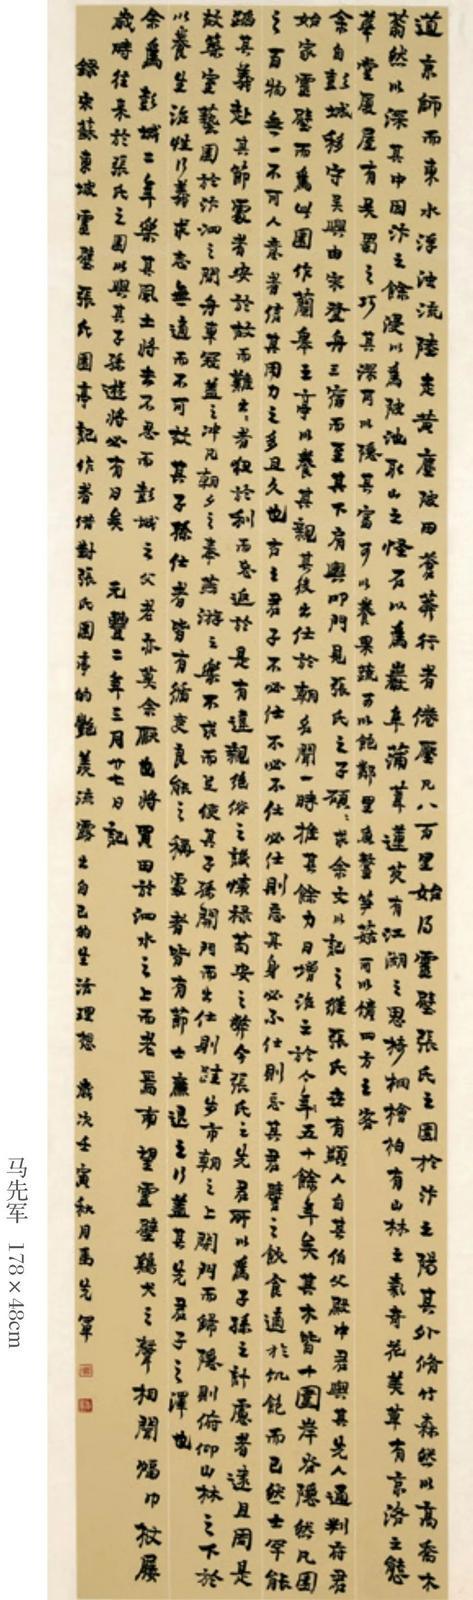 道京師而東水浮浊流陸走黃塵陂田蒼莽行者倦壓凡八百里始得靈壁張氏之園於汴之陽其外脩竹森然以高喬木
蓊然以深其中因汴之餘浸以為陂池取山之怪石以為巖阜蒲葦蓮芡有江湖之思椅桐檜柏有山林之氣奇花美草有京洛之態
華堂廈屋有吳蜀之巧其深可以隱其富可以養果蔬可以飽鄰里魚鱉笋菇可以饋四方之客
余自彭城移守吳興由宋登舟三宿而至其下肩輿叩門見張氏之子碩碩求余文以記之維張氏世有顯人自其伯父殿中君與其先人通判府君
始家靈壁而為此園作蘭皋之亭以養其親其後出仕於朝名聞一時推其餘力日增治之於今年五十餘年矣其木皆十圍岸谷隱然凡園
之百物無一不可人意者信其用力之多且久也古之君子不必仕不必不仕必仕則忘其身必不仕則忘其君譬之飲食適於飢飽而已然士罕能
蹈其義赴其節處者安於故而難出出者狃於利而忘返於是有違親絕俗之譏懷祿苟安之弊今張氏之先君所以為子孫之計慮者遠且周是
故築室藝園於汴泗之間舟車冠蓋之沖凡朝夕之奉燕游之樂不求而足使其子孫開門而出仕則跬步市朝之上閉門而歸隱則俯仰山林之下於
以養生治性行義求志無適而不可故其子孫仕者皆有循吏良能之稱處者皆有節士廉退之行蓋其先君子之澤也
余為彭城二年樂其風土將去不忍而彭城之父老亦莫余厭也將買田於泗水之上而老焉南望靈壁鷄犬之聲相聞幅巾杖屨
歲時往來於張氏之園以與其子孫遊將必有日矣 元豐二年三月廿七日記
錄宋蘇東坡靈壁張氏園亭記作者借對張氏園亭的艷羨流露出自己的生活理想 歲次壬寅秋月馬先軍
马先军 178×48cm